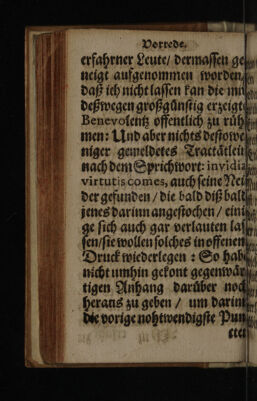 Vorrede.
erfahrner Leute/ dermassen ge
neigt aufgenommen worden,
daß ich nicht lassen kan die mi
deßwegen großgünstig erzeigte
Benevolentz öffentlich zu rüh
men: Und aber nichts destowe
niger gemeldetes Tractätlein
nach dem Sprichwort: invidia
virtutis comes, auch seine Nei
der gefunden / die bald diß bald
jenes darinn angestochen / eini
ge sich auch gar verlauten las
sen/sie wollen solches in offenen
Druck wiederlegen : So hab
nicht umhin gekont gegenwär
tigen Anhang darüber noch
heraus zu geben / um darinn
die vorige nohtwendigste Pun
cten